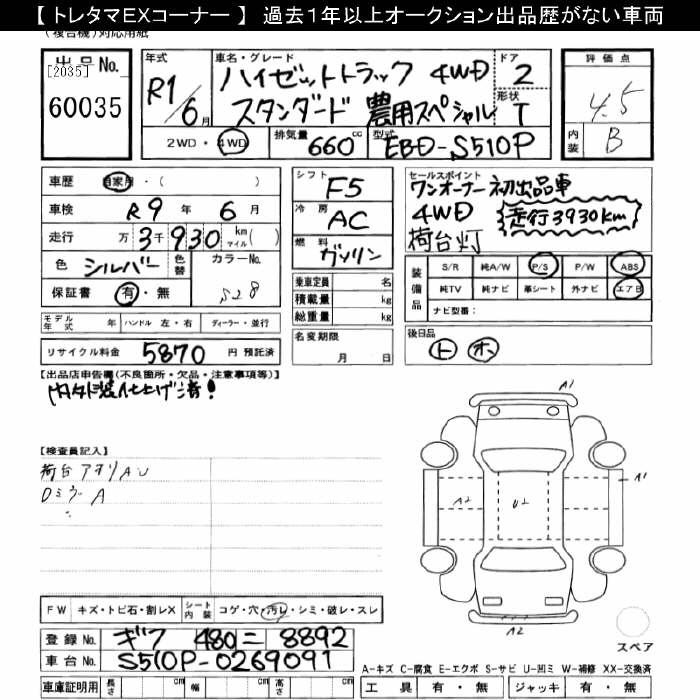 【 トレタマEXコーナー 】 過去1年以上オークション出品歴がない車両
(複合機) 対応用紙
出品No. [2035] 60035
年式 R1/6月
車名・グレード ハイゼットトラック 4WD
スタンダード 農用スペシャル
ドア 2
形状 T
2WD・4WD 排気量 660cc 型式 EBD-S510P
評価点 4.5
内装 B
車歴 自家用・( )
車検 R9年 6月
走行 万 3千930 km マイル ( )
色 シルバー 色替 カラーNo. S28
保証書 有・無
シフト F5
冷房 AC
燃料 ガソリン
乗車定員 名
積載量 kg
総重量 kg
セールスポイント
ワンオーナー 初出品車
4WD 走行3930km
荷台灯
装備品 S/R 純A/W P/S P/W ABS
純TV 純ナビ 革シート 外ナビ エアB
ナビ型番:
モデル年式 年 ハンドル 左・右 ディーラー・並行
名変期限 月 日
後日品
ト ホ
リサイクル料金 5870 円 預託済
【出品店申告欄(不良箇所・欠品・注意事項等)】
内外装仕上げ済!
【検査員記入】
荷台アオリAU
Dミラー A
A1
A2
U2
A1
A2
FW キズ・トビ石・割レX シート内装 コゲ・穴・汚レ・シミ・破レ・スレ
登録No. ギフ 480 ニ 8892
車台No. S510P-0269091
スペア
A-キズ C-腐食 E-エクボ S-サビ U-凹ミ W-補修 XX-交換済
車庫証明用 長さ cm 幅 cm 高さ cm
工具 有・無 ジャッキ 有・無